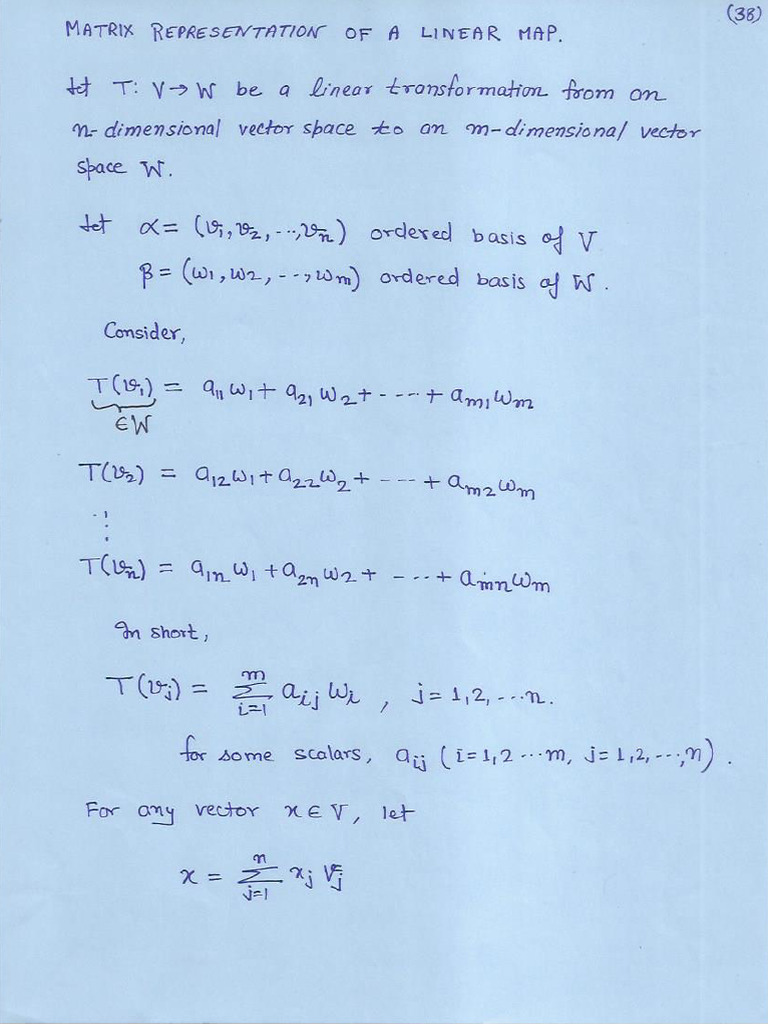 (38)
MATRIX REPRESENTATION OF A LINEAR MAP.
Let T: V→W be a linear transformation from an
n-dimensional vector space to an m-dimensional vector
space W.
Let α = (v₁, v₂, ..., vₙ) ordered basis of V
β = (w₁, w₂, ..., wₘ) ordered basis of W.
Consider,
T(v₁) = a₁₁w₁ + a₂₁w₂ + ---- + aₘ₁wₘ
∈W
T(v₂) = a₁₂w₁ + a₂₂w₂ + ---- + aₘ₂wₘ
⋮
T(vₙ) = a₁ₙw₁ + a₂ₙw₂ + ---- + aₘₙwₘ
In short,
T(vⱼ) = ∑_{i=1}^{m} aᵢⱼ wᵢ , j = 1,2, ...n.
for some scalars, aᵢⱼ (i=1,2 ...m, j=1,2,...,n).
For any vector x∈V, let
x = ∑_{j=1}^{n} xⱼ vⱼ